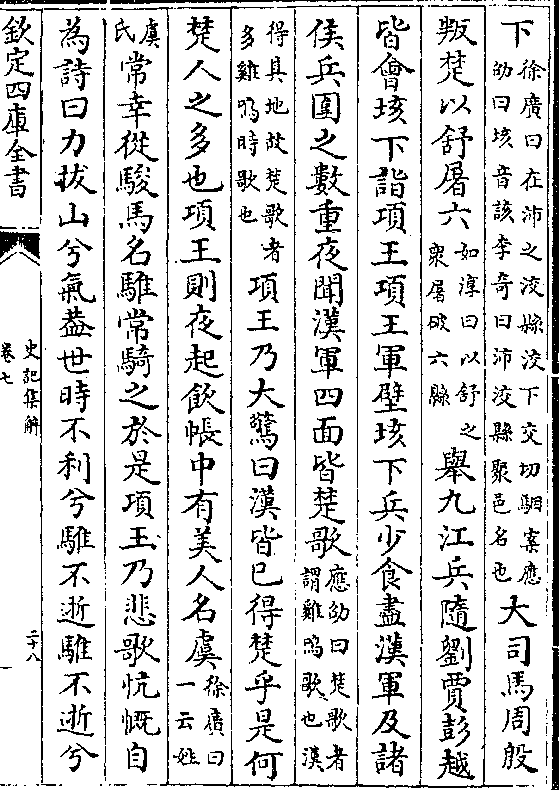 下徐廣曰在沛之洨縣洨下交切駰案應
劭曰垓音該李奇曰沛洨縣聚邑名也大司馬周殷
叛楚以舒屠六如淳曰以舒之
衆屠破六縣舉九江兵隨劉賈彭越
皆會垓下詣項王項王軍壁垓下兵少食盡漢軍及諸
侯兵圍之數重夜聞漢軍四面皆楚歌應劭曰楚歌者
謂雞鳴歌也漢
得其地故楚歌者
多雞鳴時歌也項王乃大驚曰漢皆已得楚乎是何
楚人之多也項王則夜起飲帳中有美人名虞徐廣曰
一云姓
虞
氏常幸從駿馬名騅常騎之於是項王乃悲歌忼慨自
為詩曰力拔山兮氣蓋世時不利兮騅不逝騅不逝兮
欽定四庫全書
史記集解
卷七
二十八